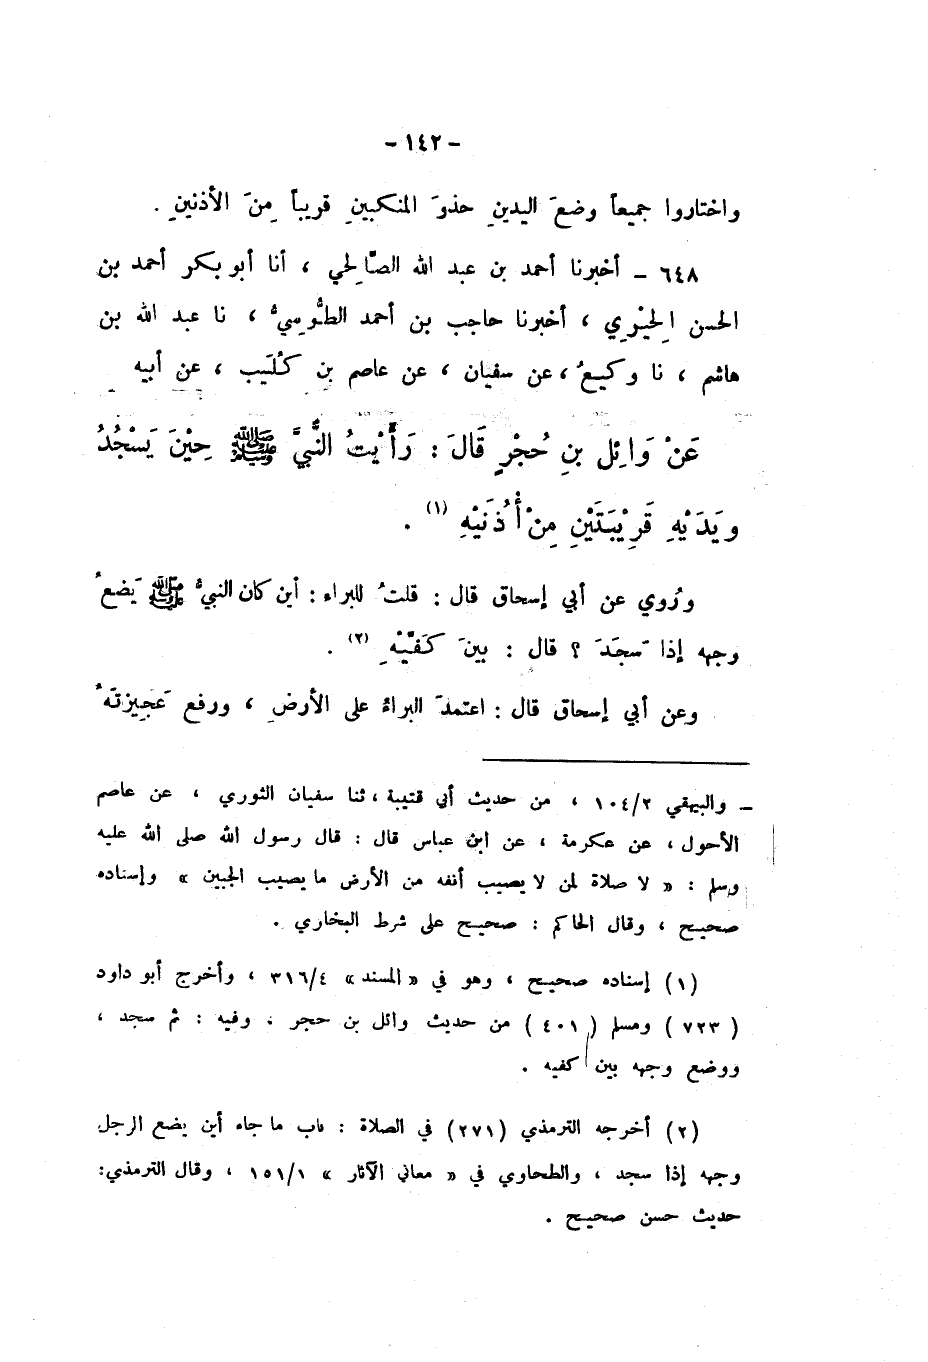 - ١٤٢ -
واختاروا جميعاً وضعَ اليدينِ حذوَ المنكبينِ قريباً مِنَ الأذنينِ .
٦٤٨ - أخبرنا أحمد بن عبد الله الصَّالِحي ، أنا أبو بكر أحمد بن
الحسن الحِيْرِي ، أخبرنا حاجب بن أحمد الطُّوسِيُّ ، نا عبد الله بن
هاشم ، نا وكيعٌ ، عن سفيان ، عن عاصم بن كُلَيب ، عن أبيه
عَنْ وَائِل بنِ حُجْرٍ قَالَ : رَأَيْتُ النَّبيَّ ﷺ حِيْنَ يَسْجُدُ
ويَدَيْهِ قَرِيْبَتَيْنِ مِنْ أُذُنَيْهِ (١) .
ورُوي عن أبي إسحاق قال : قلتُ للبراء : أين كان النبيُّ ﷺ يَضعُ
وجهه إذا سَجَدَ ؟ قال : بينَ كَفَّيْهِ (٢) .
وعن أبي إسحاق قال : اعتمدَ البراءُ على الأرضِ ، ورفع عَجِيزتَهُ
- والبيهقي ١٠٤/٢ ، من حديث أبي قتيبة ، ثنا سفيان الثوري ، عن عاصم
الأحول ، عن عكرمة ، عن ابن عباس قال : قال رسول الله صلى الله عليه
وسلم : « لا صلاة لمن لا يصيب أنفه من الأرض ما يصيب الجبين » وإسناده
صحيح ، وقال الحاكم : صحيح على شرط البخاري .
(١) إسناده صحيح ، وهو في « المسند » ٣١٦/٤ ، وأخرج أبو داود
( ٧٢٣ ) ومسلم ( ٤٠١ ) من حديث وائل بن حجر . وفيه : ثم سجد ،
ووضع وجهه بين كفيه .
(٢) أخرجه الترمذي (٢٧١) في الصلاة : باب ما جاء أين يضع الرجل
وجهه إذا سجد ، والطحاوي في « معاني الآثار » ١٥١/١ ، وقال الترمذي:
حديث حسن صحيح .